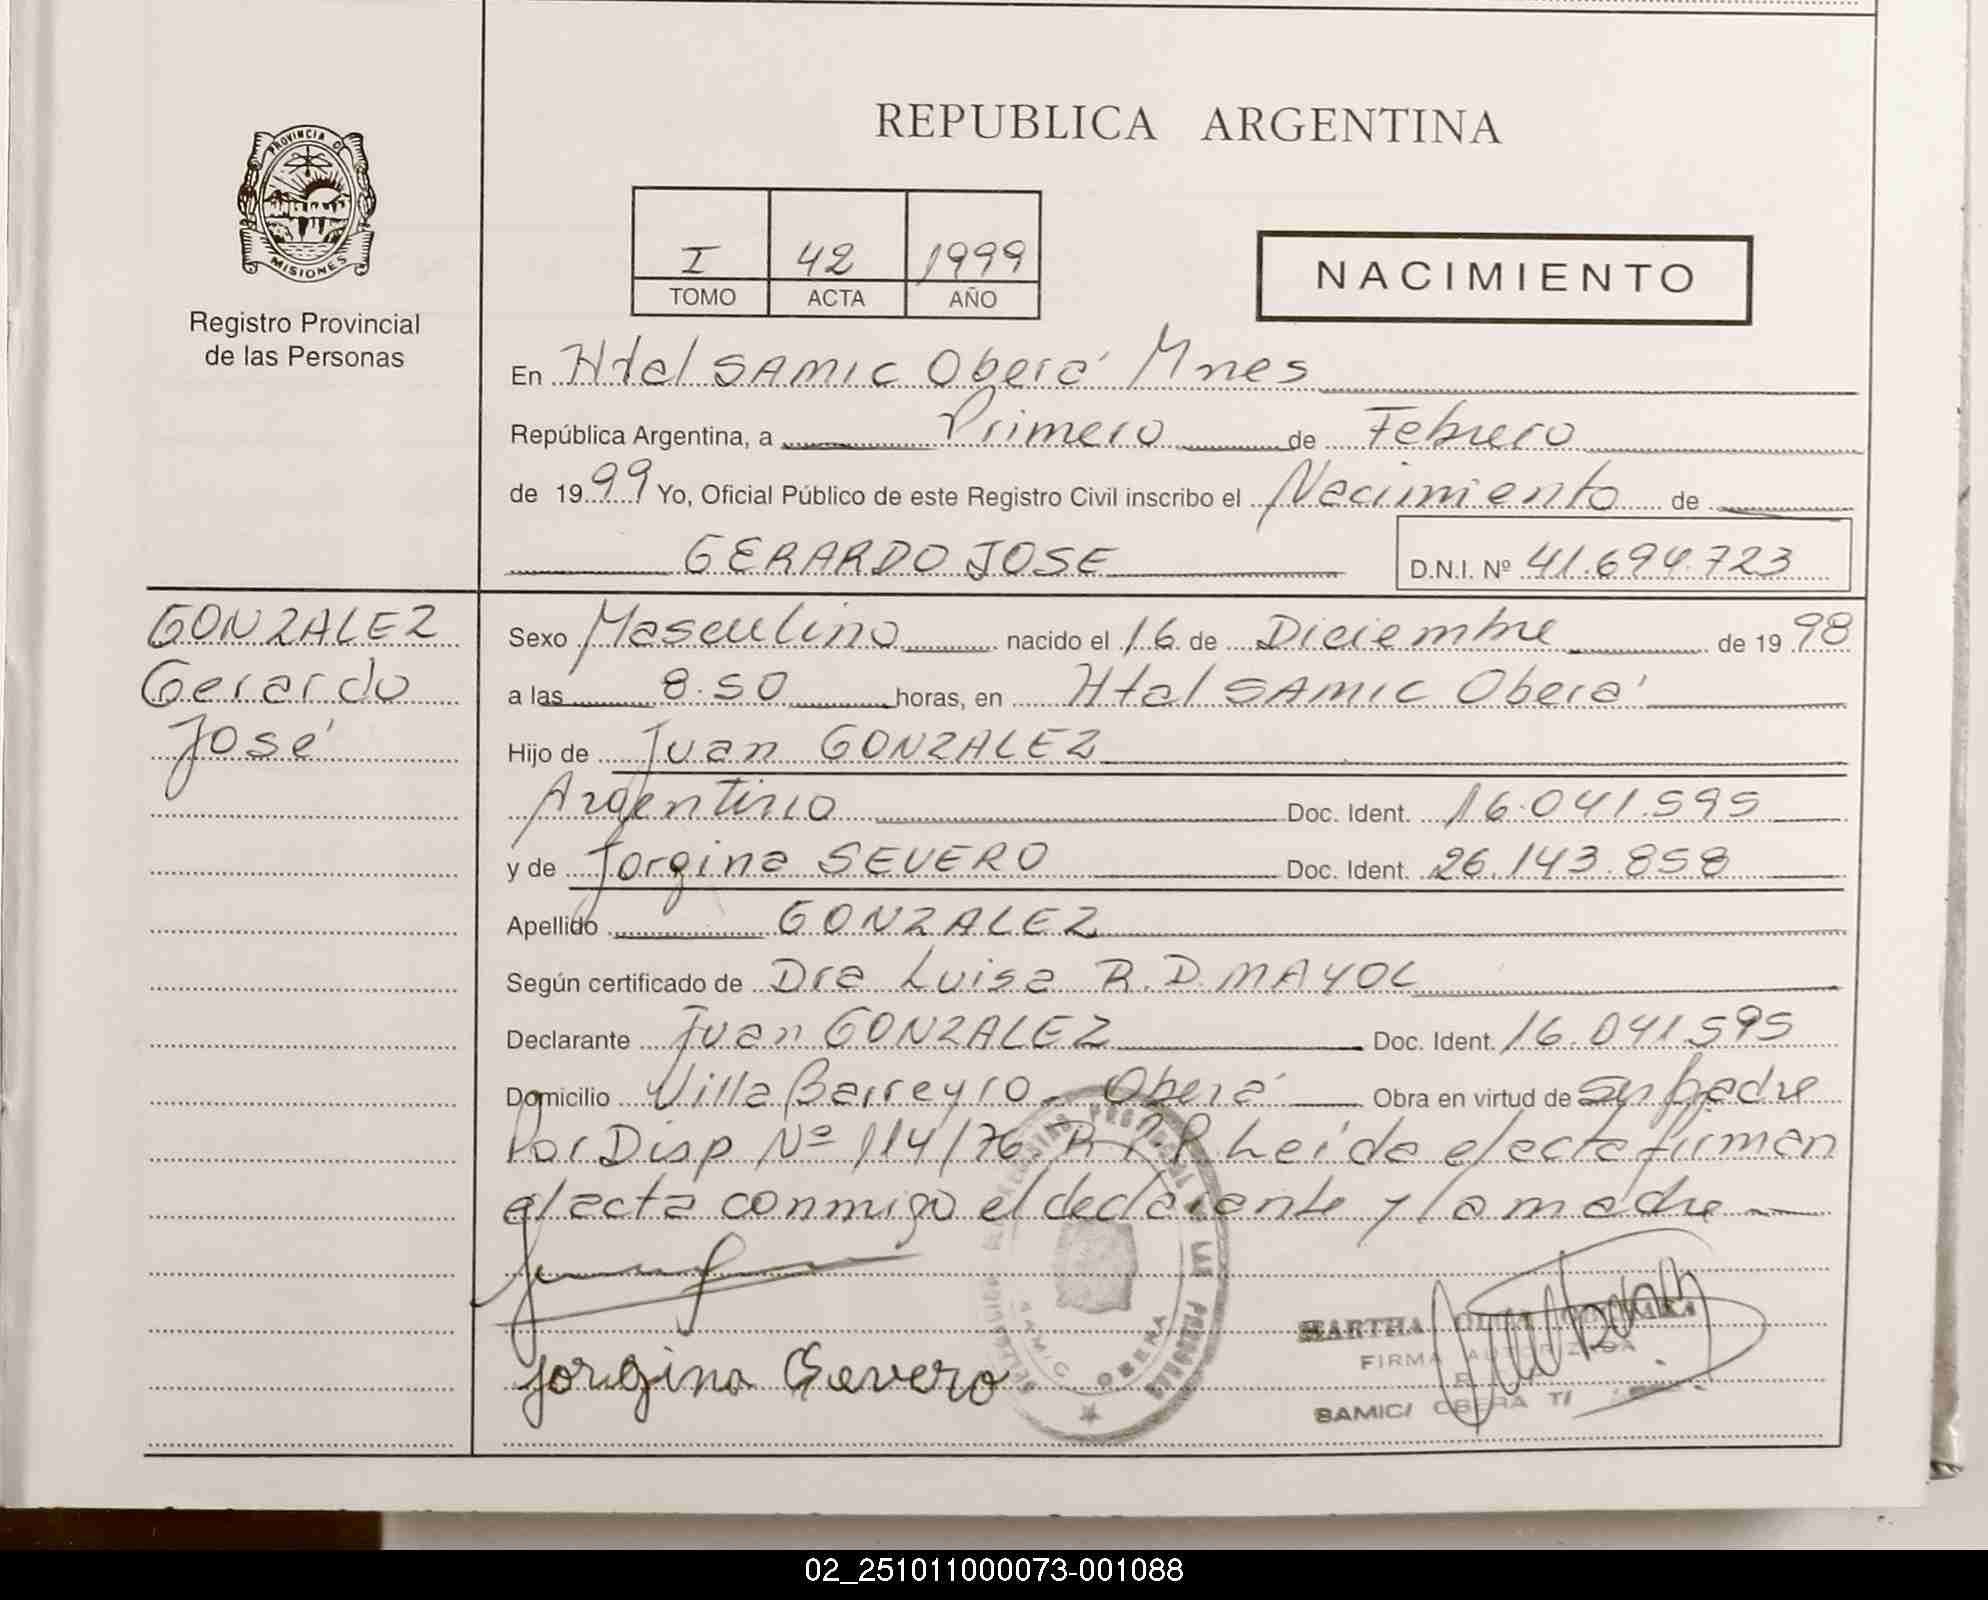 REPUBLICA ARGENTINA
PROVINCIA DE
MISIONES
Registro Provincial
de las Personas
I 42 1999
TOMO ACTA AÑO
NACIMIENTO
En Htal SAMIC Oberá Mnes
República Argentina, a Primero de Febrero
de 1999 Yo, Oficial Público de este Registro Civil inscribo el Nacimiento de
GERARDO JOSE D.N.I. Nº 41.694.723
GONZALEZ
Gerardo
José
Sexo Masculino nacido el 16 de Diciembre de 1998
a las 8.50 horas, en Htal SAMIC Oberá
Hijo de Juan GONZALEZ
Argentino Doc. Ident. 16.041.595
y de Jorgina SEVERO Doc. Ident. 26.143.858
Apellido GONZALEZ
Según certificado de Dra Luisa R.D. MAYOL
Declarante Juan GONZALEZ Doc. Ident. 16.041.595
Domicilio Villa Barreyro - Oberá Obra en virtud de su padre
Por Disp Nº 114/76 R.P.P. Leída el acta firman
el acta conmigo el declarante y la madre
Jorgina Severo
SAMIC OBERA
MARTHA
FIRMA AUTORIZADA
SAMIC/ OBERA T/
02_251011000073-001088